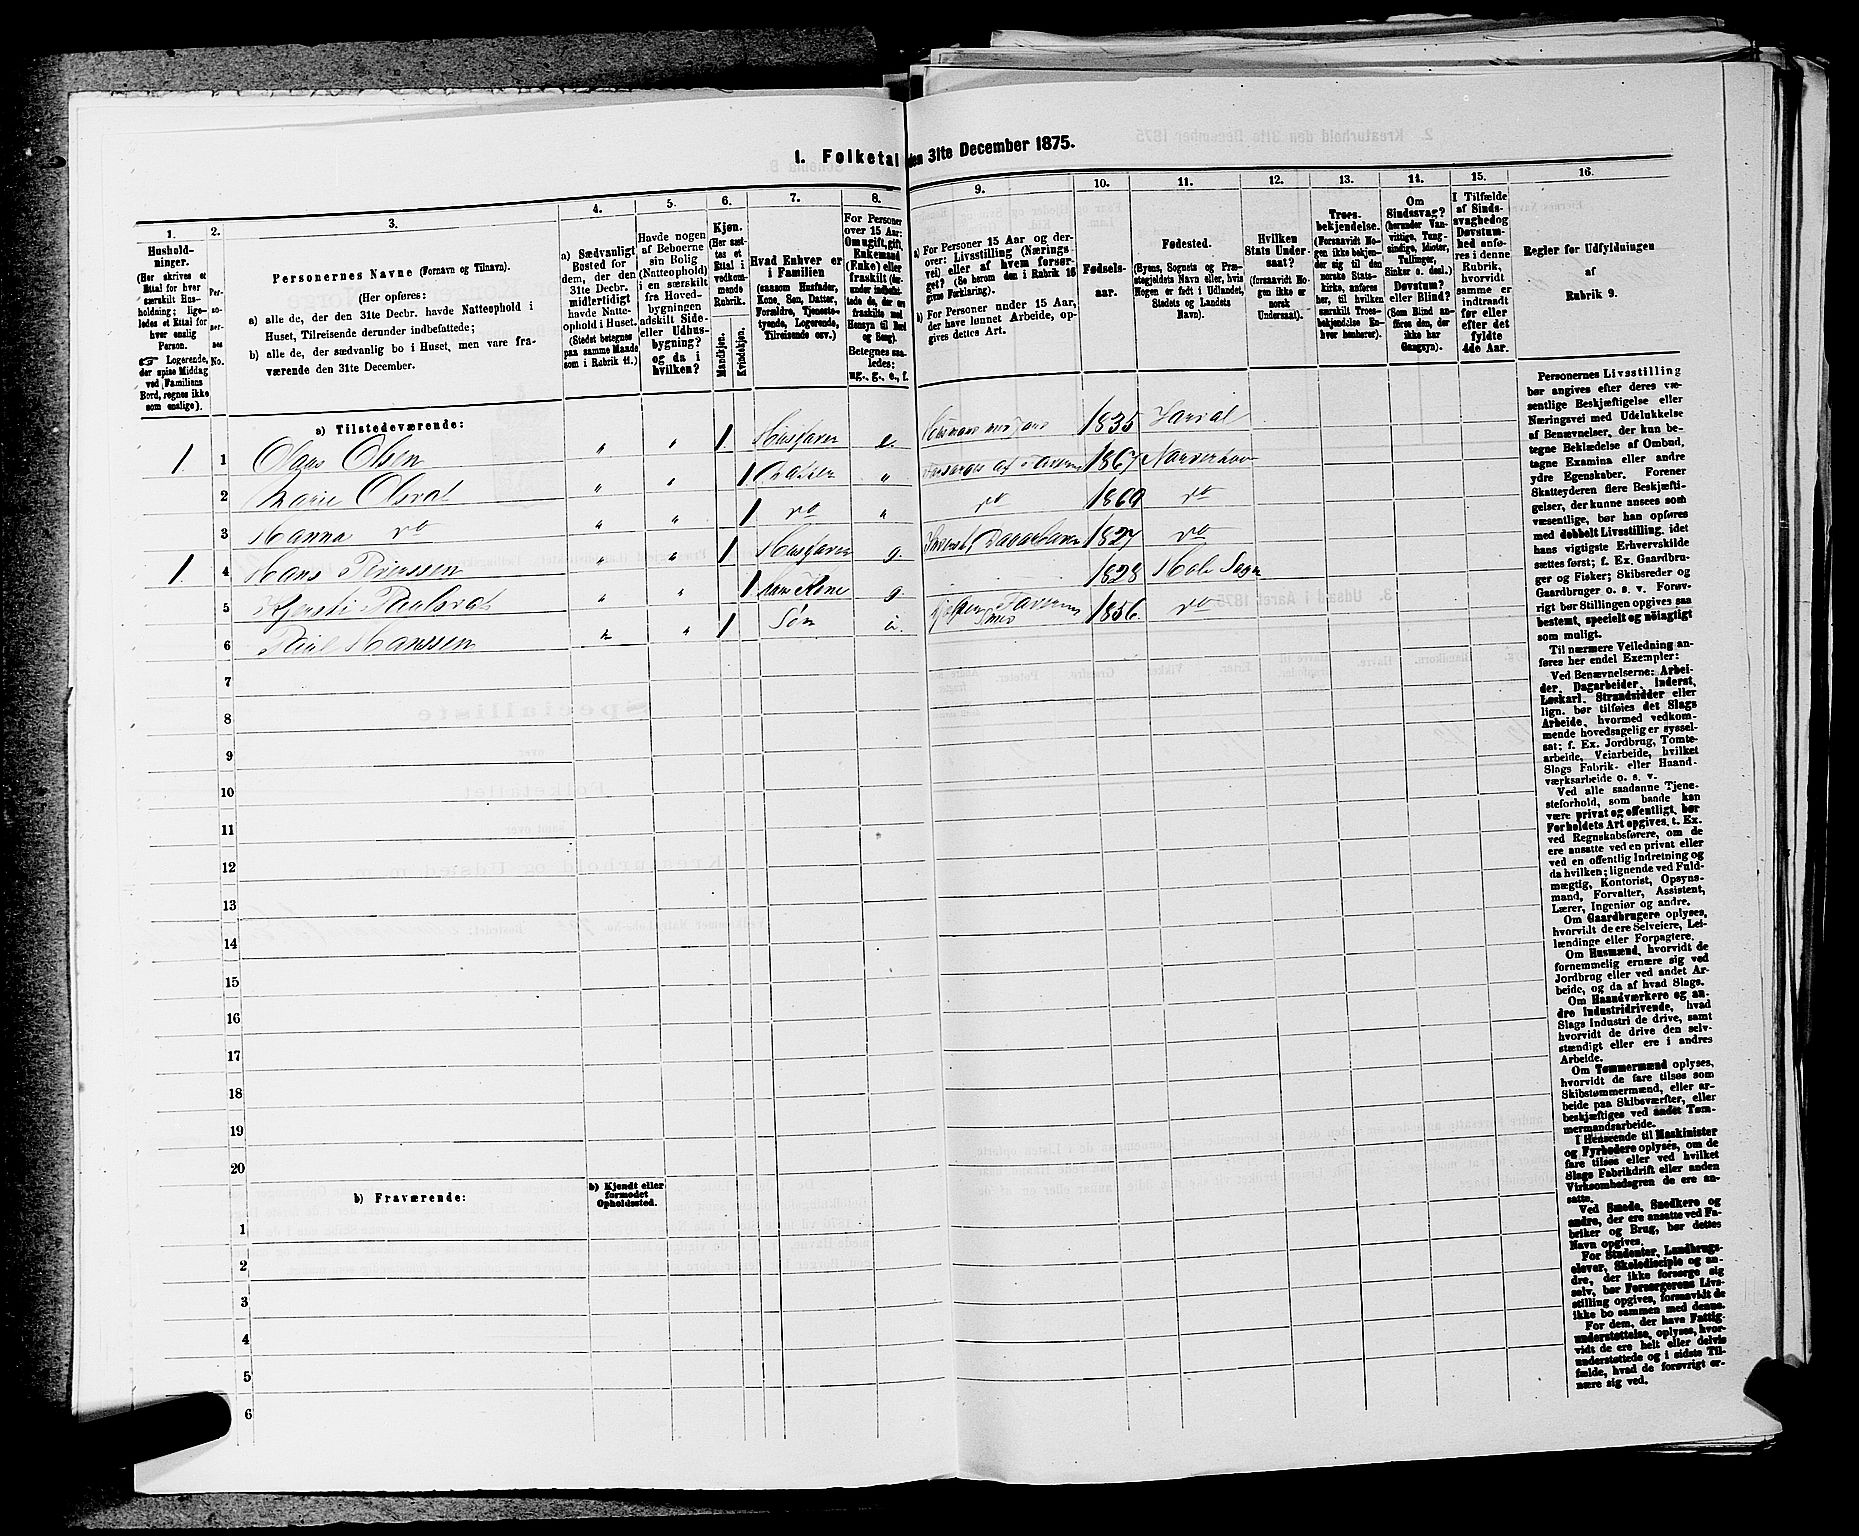 1. Folketal den 31te December 1875.
1.
2.
3.
4.
5.
6.
7.
8.
9.
10.
11.
12.
13.
14.
15.
16.
Hushold-
ninger.
(Her skrives et
Ettal for hver
særskilt Hus-
holdning; lige-
ledes et Ettal for
hver enslig
Person.
☞ Logerende,
der spise Middag
ved Familiens
Bord, regnes ikke
som enslige).
No.
Personernes Navne (Fornavn og Tilnavn).
(Her opføres:
a) alle de, der den 31te Decbr. havde Natteophold i
Huset, Tilreisende derunder indbefattede;
b) alle de, der sædvanlig bo i Huset, men vare fra-
værende den 31te December.
a) Sædvanligt
Bosted for
dem, der den
31te Decbr.
midlertidigt
havde Natte-
ophold i Huset.
(Stedet betegnes
paa samme Maade
som i Rubrik 11.)
Havde nogen
af Beboerne
sin Bolig
(Natteophold)
i en særskilt
fra Hoved-
bygningen
adskilt Side-
eller Udhus-
bygning?
og da i
hvilken?
Kjøn.
(Her sæt-
tes et
Ettal i
vedkom-
mende
Rubrik.
Mandkjøn.
Kvindekjøn.
Hvad Enhver er
i Familien
(saasom Husfader,
Kone, Søn, Datter,
Forældre, Tjeneste-
tyende, Logerende,
Tilreisende osv.)
For Personer
over 15 Aar:
Om ugift, gift,
Enkemand
(Enke) eller
fraskilt (der-
under indbefat-
tede de, der ere
fraskilte med
Hensyn til Bord
og Seng).
Betegnes saa-
ledes:
ug., g., e., f.
a) For Personer 15 Aar og der-
over: Livsstilling (Nærings-
vei) eller af hvem forsør-
get? (Se herom den i Rubrik 16
givne Forklaring).
b) For Personer under 15 Aar,
der have lønnet Arbeide, op-
gives dettes Art.
Fødsels-
aar.
Fødested.
(Byens, Sognets og Præ-
stegjeldets Navn eller, hvis
Nogen er født i Udlandet,
Stedets og Landets
Navn).
Hvilken
Stats Under-
saat?
(forsaavidt No-
gen ikke er
norsk
Undersaat).
Troes-
bekjendelse.
(Forsaavidt No-
gen ikke bekjen-
der sig til den
norske Stats-
kirke, anføres
her, til hvilken
særskilt Troes-
bekjendelse En-
hver henhører).
Om
Sindssvag?
(herunder Van-
vittige, Tung-
sindige, Idioter,
Tullinger,
Sinker o. desl.)
Døvstum?
eller Blind?
(Som Blind an-
føres den, der
ikke har
Gangsyn).
I Tilfælde
af Sinds-
svaghed og
Døvstum-
hed anfø-
res i denne
Rubrik,
hvorvidt
samme er
indtraadt
før eller
efter det
fyldte
4de Aar.
Regler for Udfyldningen
af
Rubrik 9.
a) Tilstedeværende:
1. 1 Olsen " " 1 Husfader e. 1835
2 Marie " " 1 " 1867
3 Hanna do " " 1 do " do 1869 do
1. 4 Hans " " 1 Husfader g. 1827 do
5 " " 1 Kone g. 1828 Hole Sogn
6 Hanssen " " 1 Søn 1856. do
7
8
9
10
11
12
13
14
15
16
17
18
19
20
b) Fraværende:
b) Kjendt eller
formodet
Opholdssted.
1
2
3
4
5
6
Personernes Livsstilling
bør angives efter deres væ-
sentlige Beskjæftigelse eller
Næringsvei med Udelukkelse
af Benævnelser, der kun be-
tegne Beklædelse af Ombud,
tagne Examina eller andre
ydre Egenskaber. Forener
Skatteyderen flere Beskjæfti-
gelser, der kunne ansees som
væsentlige, bør han opføres
med dobbelt Livsstilling, idet
hans vigtigste Erhvervskilde
sættes først; f. Ex. Gaardbru-
ger og Fisker; Skibsreder og
Gaardbruger o. s. v. Forøv-
rigt bør Stillingen opgives saa
bestemt, specielt og nöiagtigt
som muligt.
Til nærmere Veiledning an-
føres her endel Exempler:
Ved Benævnelserne: Arbei-
der, Dagarbeider, Inderst,
Løskarl, Strandsidder eller
lign. bør tilføies det Slags
Arbeide, hvormed vedkom-
mende hovedsagelig er syssel-
sat; f. Ex. Jordbrug, Tomte-
arbeide, Veiarbeide, hvilket
Slags Fabrik- eller Haand-
værksarbeide o. s. v.
Ved alle saadanne Tjene-
steforhold, som baade kan
være privat og offentligt, bør
Forholdets Art opgives, t. Ex.
ved Regnskabsførere, om de
ere ansatte ved en privat eller
ved en offentlig Indretning og
da hvilken; lignende ved Fuld-
mægtig, Kontorist, Opsyns-
mand, Forvalter, Assistent,
Lærer, Ingeniør og andre.
Om Gaardbrugere oplyses,
hvorvidt de ere Selveiere, Lei-
lændinge eller Forpagtere.
Om Husmænd, hvorvidt de
fornemmelig ernære sig ved
Jordbrug eller ved andet Ar-
beide, og da af hvad Slags.
Om Haandværkere og an-
dre Industridrivende, hvad
Slags Industri de drive, samt
hvorvidt de drive den selv-
stændigt eller ere i andres
Arbeide.
Om Tømmermænd oplyses,
hvorvidt de fare tilsøs som
Skibstømmermænd, eller ar-
beide paa Skibsværfter, eller
beskjæftiges ved andet Tøm-
mermandsarbeide.
I Henseende til Maskinister
og Fyrbødere oplyses, om de
fare tilsøs eller ved hvilket
Slags Fabrikdrift eller anden
Virksomhedsgren de ere an-
satte.
Ved Smede, Snedkere og
andre, der ere ansatte ved Fa-
briker og Brug, bør dettes
Navn opgives.
For Studenter, Landbrugs-
elever, Skoledisciple og an-
dre, der ikke forsørge sig
selv, bør Forsørgerens Livs-
stilling opgives, forsaavidt de
ikke bo sammen med denne.
For dem, der have Fattig-
understøttelse, oplyses, hvor-
vidt de ere helt eller delvis
understøttede og i sidste Til-
fælde, hvad de forøvrigt er-
nære sig ved.